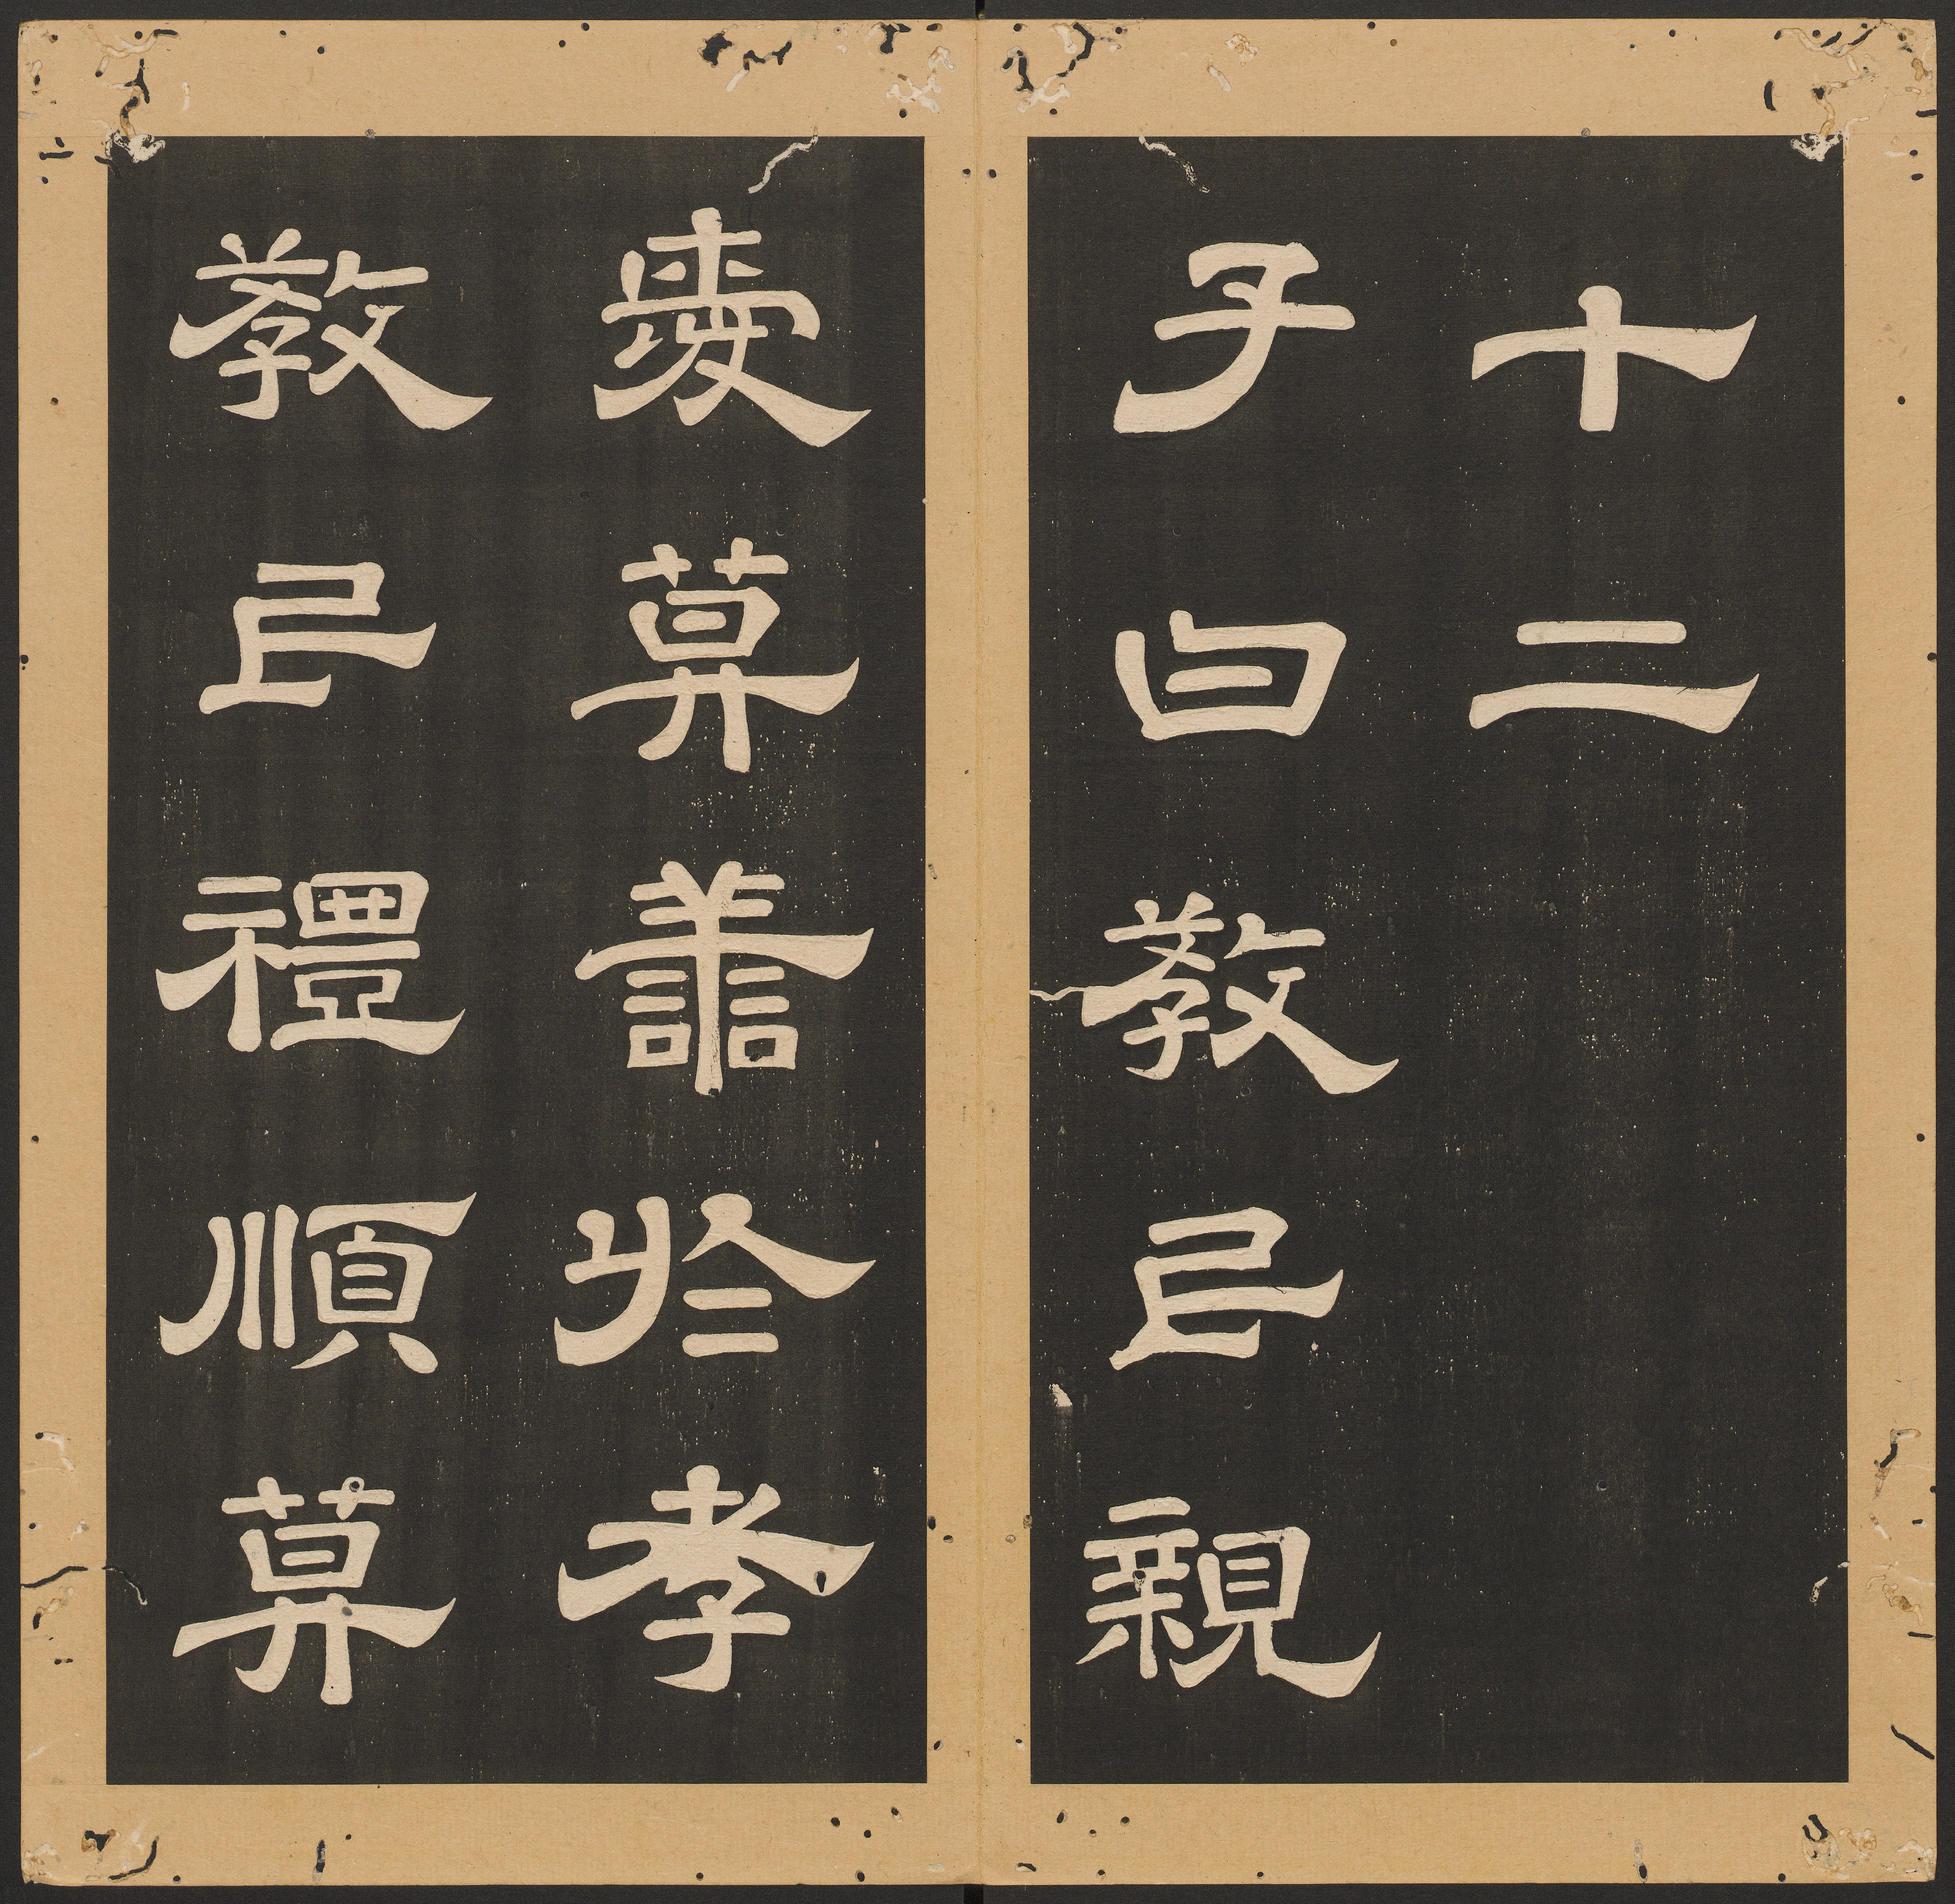 十二
子曰教民親
愛莫譱於孝
教民禮順莫